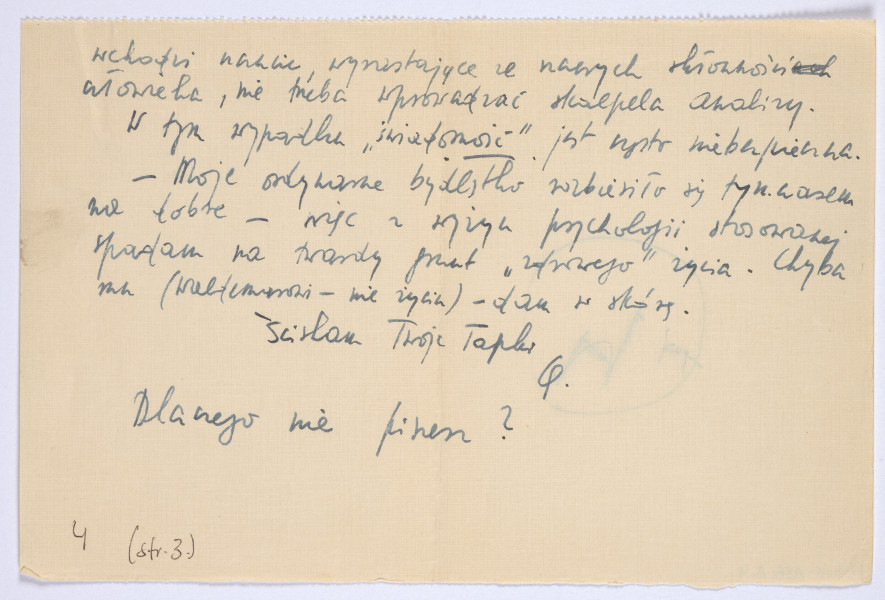 wchodzi nawet, wyrastające ze naszych skłonności
człowieka, nie trzeba wprowadzać skalpela analizy.
W tym wypadku „świadomość” jest często niebezpieczna.
— Moje ordynarne bydlątko rozbiesiło się tymczasem
na dobre — więc z wyżyn psychologii stosowanej
spadam na twardy grunt „zdrowego” życia. Chyba
mu (Waldemarowi — nie życiu) — dam w skórę.
Ściskam Twoje Łapki
Q.
Dlaczego nie piszesz?
4 (str. 3.)